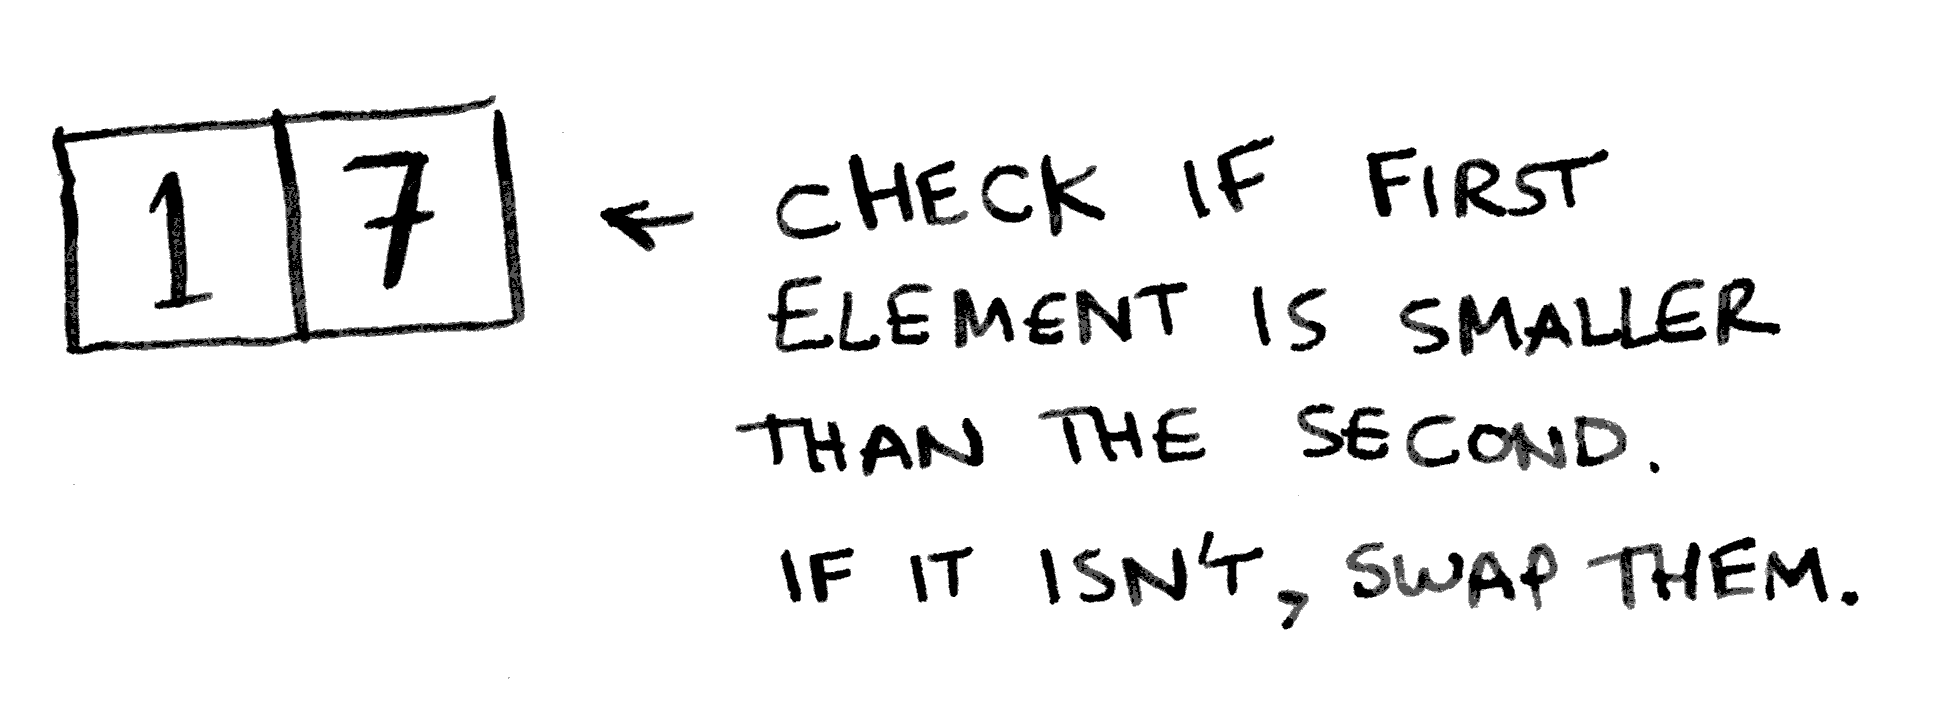 1 7 ← CHECK IF FIRST
ELEMENT IS SMALLER
THAN THE SECOND.
IF IT ISN'T, SWAP THEM.